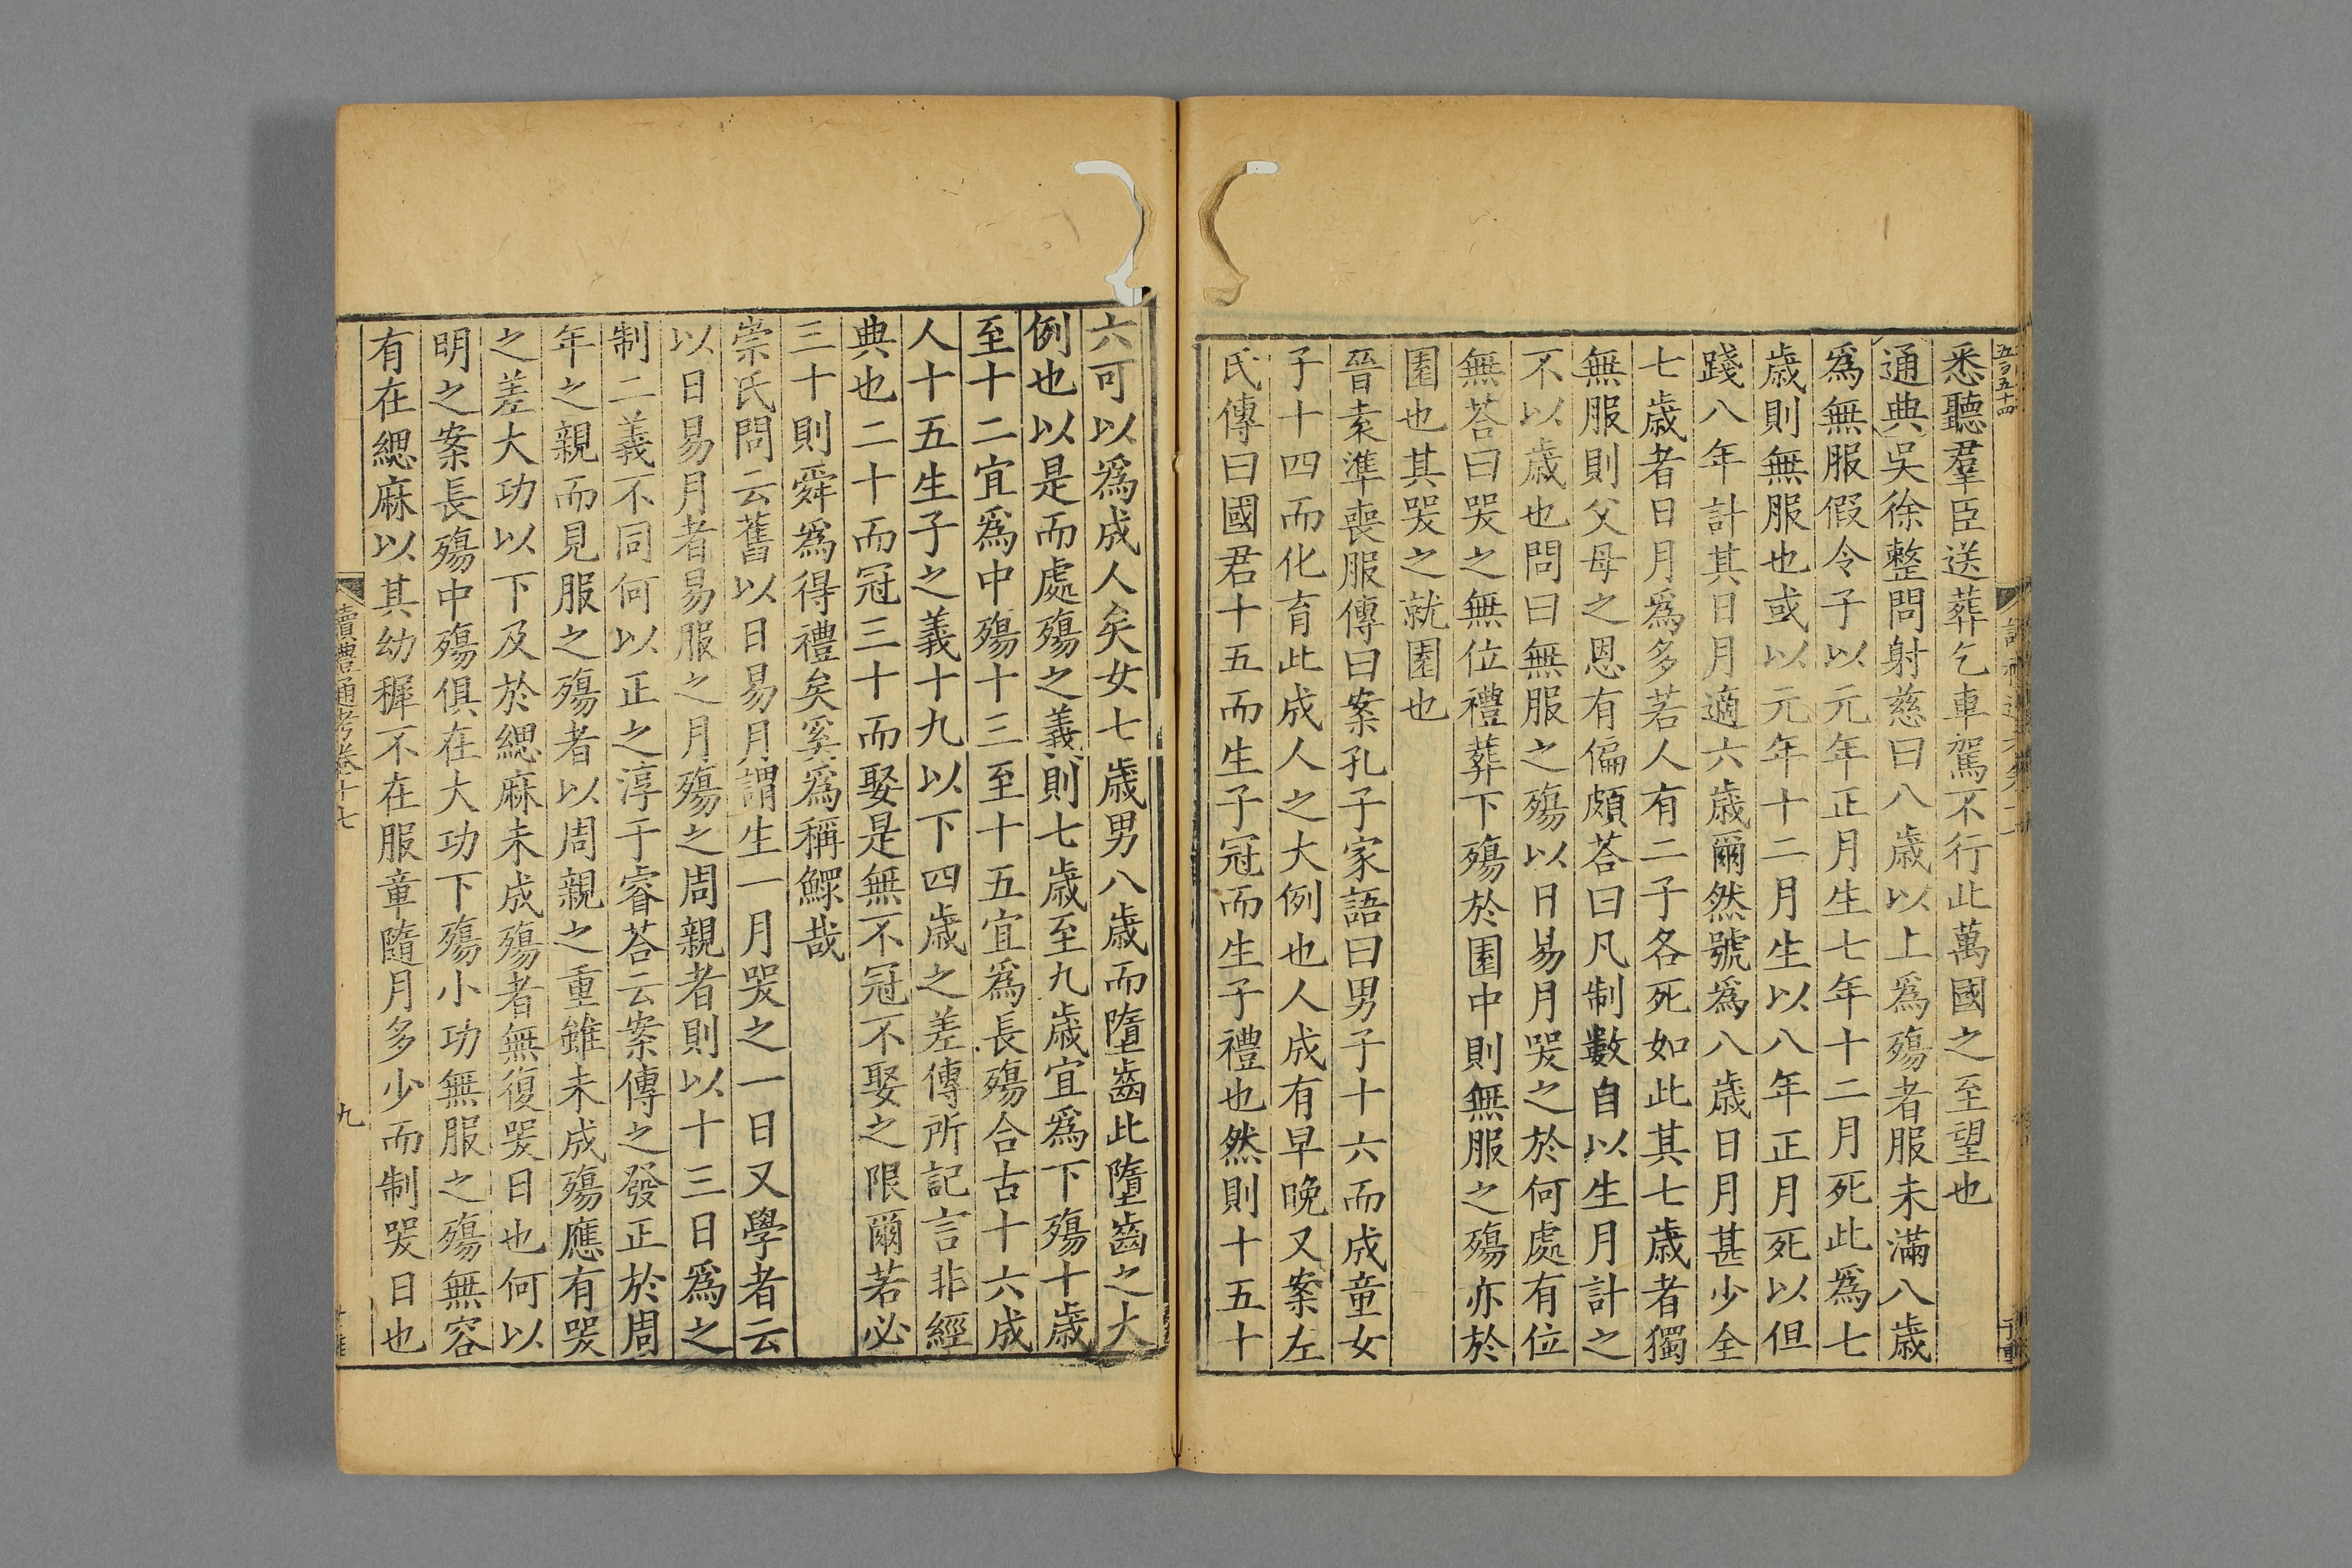 悉聽羣臣送葬乞車駕不行此萬國之至望也
通典吳徐整問射慈曰八歲以上爲殤者服未滿八歲
爲無服假令子以元年正月生七年十二月死此爲七
歲則無服也或以元年十二月生以八年正月死以但
踐八年計其日月適六歲爾然號爲八歲日月甚少全
七歲者日月爲多若人有二子各死如此其七歲者獨
無服則父母之恩有偏頗荅曰凡制數自以生月計之
不以歲也問曰無服之殤以日易月哭之於何處有位
無荅曰哭之無位禮葬下殤於園中則無服之殤亦於
園也其哭之就園也
晉袁準喪服傳曰案孔子家語曰男子十六而成童女
子十四而化育此成人之大例也人成有早晚又案左
氏傳曰國君十五而生子冠而生子禮也然則十五十
六可以爲成人矣女七歲男八歲而墮齒此墮齒之大
例也以是而處殤之義則七歲至九歲宜爲下殤十歲
至十二宜爲中殤十三至十五宜爲長殤合古十六成
人十五生子之義十九以下四歲之差傳所記言非經
典也二十而冠三十而娶是無不冠不娶之限爾若必
三十則舜爲得禮矣奚爲稱鰥哉
崇氏問云舊以日易月謂生一月哭之一日又學者云
以日易月者易服之月殤之周親者則以十三日爲之
制二義不同何以正之淳于睿荅云案傳之發正於周
年之親而見服之殤者以周親之重雖未成殤應有哭
之差大功以下及於緦麻未成殤者無復哭日也何以
明之案長殤中殤俱在大功下殤小功無服之殤無容
有在緦麻以其幼穉不在服章隨月多少而制哭日也
讀禮通考卷十七
九